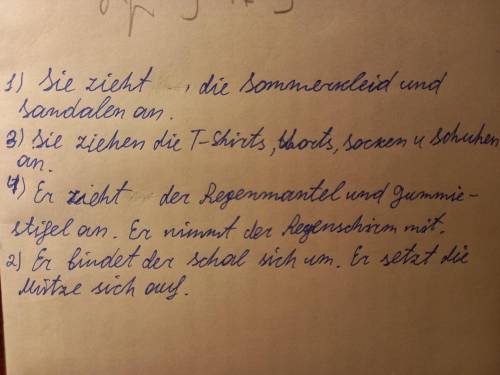 1) Sie zieht , die Sommerkleid und
Sandalen an.
3) Sie ziehen die T-Shirts, Shorts, Socken u Schuhen
an.
4) Er zieht der Regenmantel und Gummie-
stifel an. Er nimmt der Regenschirm mit.
2) Er bindet der Schal sich um. Er setzt die
Mütze sich auf.